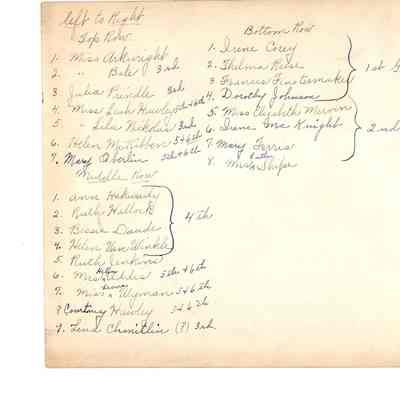 left to Right
Top Row
1. Miss Arkwright
2. " Bate 3rd
3. Julia Prindle 3rd
4. Miss Leah Hawley 5th & 6th
5. " Lela Nickolas 3rd
6. Helen McKibben 5 & 6th
7. Mary Oberlin 5th & 6th
Middle Row
1. Ann
2. Ruth Hallock
3. Bessie
4. Helen Van Winkle
4th
5. Ruth Jenkins
6. Mrs. 5th & 6th
7. Miss Wyman 5 & 6th
8 Courtney Hawley 5 & 6th
9. Lena (?) 3rd
Bottom Row
1. Irene Corey
2. Thelma
3. Frances
4. Dorothy Johnson
1st
5. Miss Elizabeth Mervin
6. Irene Mc Knight
7. Mary Ferris
8. Miss
2nd